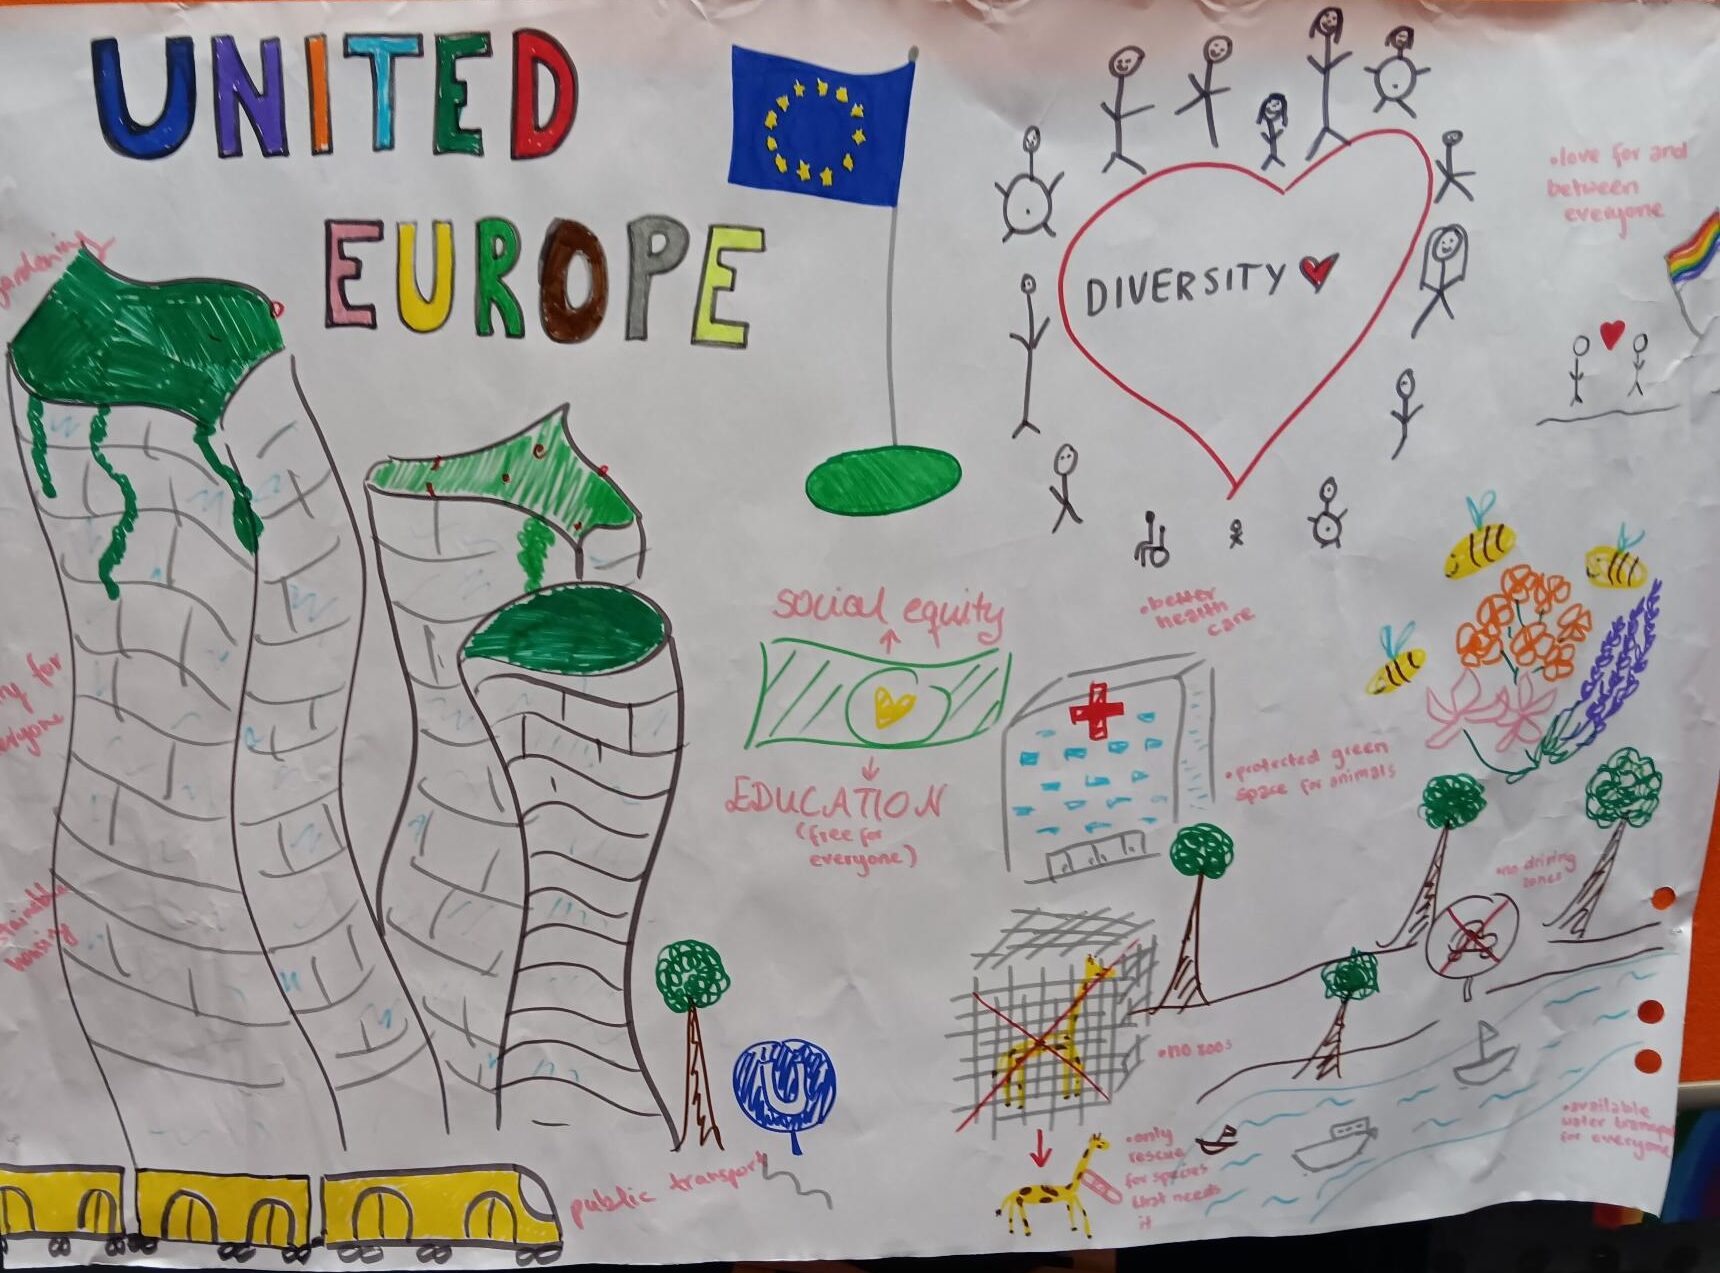 UNITED
EUROPE
DIVERSITY
•love for and
between
everyone
gardening
for
everyone
housing
social equity
EDUCATION
(free for
everyone)
•better
health
care
•protected green
space for animals
•no driving
zones
•no zoos
•only
rescue
for species
that needs
it
•available
water transport
for everyone
U
public transport